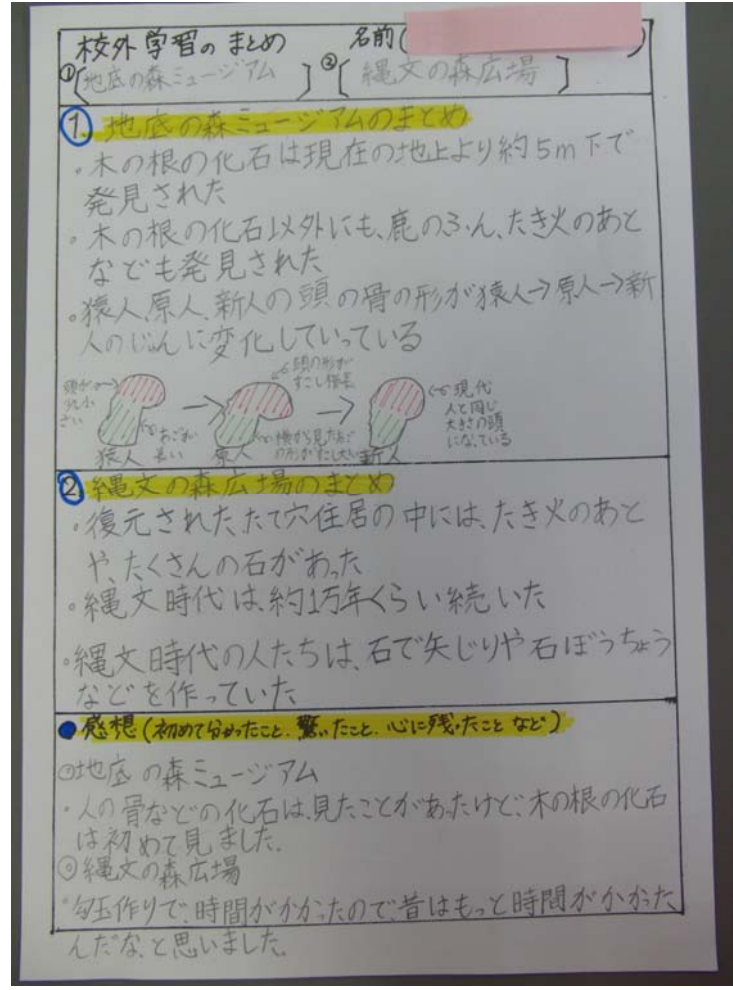 校外学習のまとめ 名前( )
①[地底の森ミュージアム] ②[縄文の森広場]
1. 地底の森ミュージアムのまとめ
・木の根の化石は現在の地上より約5m下で
発見された
・木の根の化石以外にも、鹿のふん、たき火のあと
なども発見された
・猿人、原人、新人の頭の骨の形が猿人→原人→新
人のじゅんに変化していっている
頭が少し小さい
あごが長い
猿人
頭の形がすこし横長
横から見たあごの形がすこし太い
原人
現代人と同じ大きさの頭になっている
新人
2. 縄文の森広場のまとめ
・復元されたたて穴住居の中には、たき火のあと
や、たくさんの石があった
・縄文時代は、約1万年くらい続いた
・縄文時代の人たちは、石で矢じりや石ぼうちょう
などを作っていた
●感想(初めて分かったこと、驚いたこと、心に残ったことなど)
地底の森ミュージアム
・人の骨などの化石は、見たことがあったけど、木の根の化石
は初めて見ました。
縄文の森広場
・勾玉作りで、時間がかかったので、昔はもっと時間がかかった
んだな、と思いました。